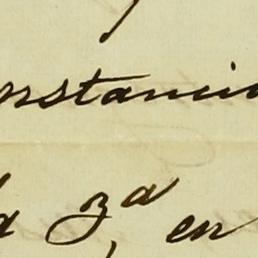 onstanci
a 3ª, en